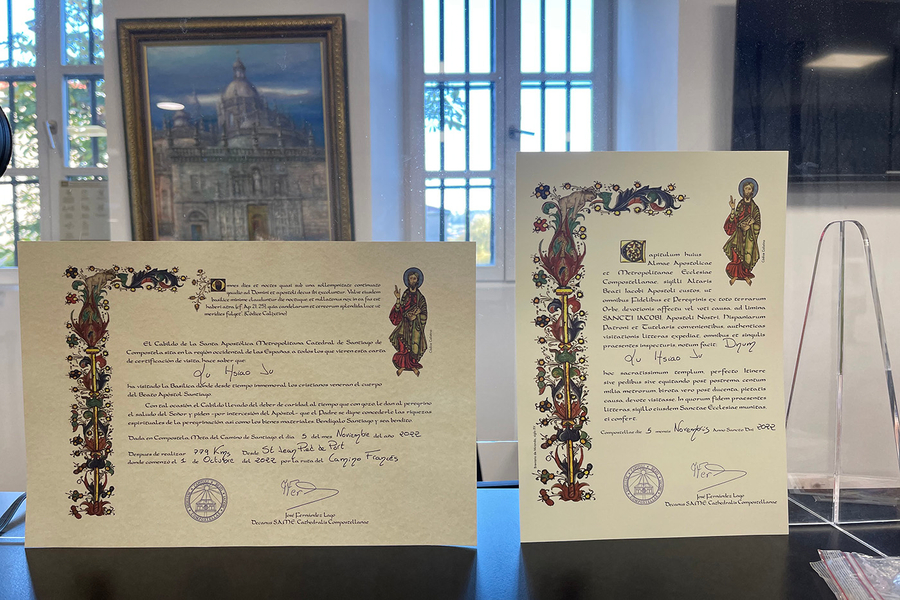 Omnes dies et noctes quasi sub una sollempnitate continuato
gaudio ad Domini et apostoli decus ibi excoluntur. Valve eiusdem
basilice minime clauduntur die noctuque et nullatenus nox in ea fas est
haberi atra (cf. Ap 21, 25), quia candelarum et cereorum splendida luce ut
meridies fulget. (Codex Calixtino)
El Cabildo de la Santa Apostólica Metropolitana Catedral de Santiago de
Compostela sita en la región occidental de las Españas, a todos los que vieren esta carta
de certificación de visita, hace saber que:
Hsiao Ju
ha visitado la Basílica donde desde tiempo inmemorial los cristianos veneran el cuerpo
del Beato Apóstol Santiago.
Con tal ocasión el Cabildo llevado del deber de caridad, al tiempo que con gozo le dan al peregrino
el saludo del Señor y piden -por intercesión del Apóstol- que el Padre se digne concederle las riquezas
espirituales de la peregrinación así como los bienes materiales. Bendígalo Santiago y sea bendito.
Dada en Compostela, Meta del Camino de Santiago el día 5 del mes Noviembre del año 2022
Después de realizar 779 Kms Desde St Jean Pied de Port
donde comenzó el 1 de Octubre del 2022 por la ruta del Camino Francés
José Fernández Lago
Decanus S.A.M.E. Cathedralis Compostellanae
Capitulum huius
Almae Apostolicae
et Metropolitanae Ecclesiae
Compostellanae, sigilli Altaris
Beati Iacobi Apostoli custos, ut
omnibus Fidelibus et Peregrinis ex toto terrarum
Orbe, devotionis affectu vel voti causa, ad limina
SANCTI IACOBI, Apostoli Nostri, Hispaniarum
Patroni et Tutelaris convenientibus, authenticas
visitationis litteras expediat, omnibus et singulis
praesentes inspecturis, notum facit: Dnum
Hsiao Ju
hoc sacratissimum templum, perfecto Itinere
sive pedibus sive equitando post postrema centum
milia metrorum, birota vero post ducenta, pietatis
causa, devote visitasse. In quorum fidem praesentes
litteras, sigillo eiusdem Sanctae Ecclesiae munitas,
ei confert.
Compostellae die 5 mensis Novembris Anno Sancto Dni 2022
José Fernández Lago
Decanus S.A.M.E. Cathedralis Compostellanae